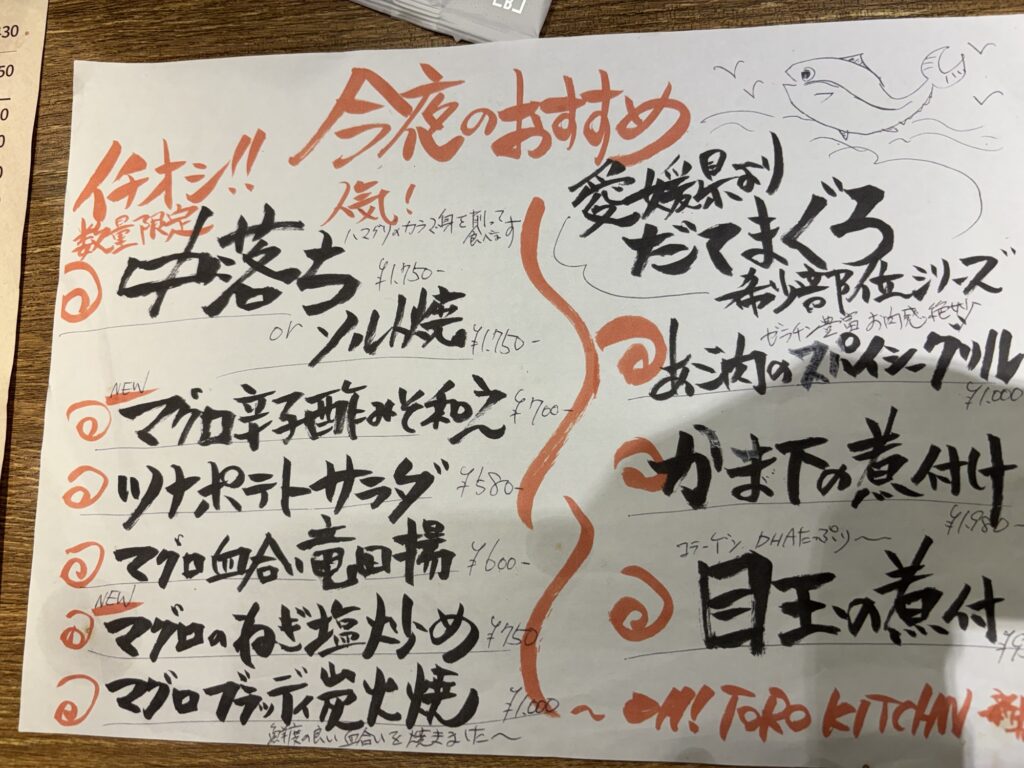 今夜のおすすめ
イチオシ!!
数量限定
人気!
ハマグリのカラで身を削って
食べます
中落ち
¥1,750-
or ソルト焼
¥1,750-
NEW
マグロ辛子酢みそ和え ¥700-
ツナポテトサラダ ¥580-
マグロ血合い竜田揚 ¥600-
NEW
マグロのねぎ塩炒め ¥750
マグロブラッディ炭火焼 ¥1,000
鮮度の良い血合いを焼きました〜
愛媛県より
だてまぐろ
希少部位シリーズ
ゼラチン豊富 お肉感絶妙
あご肉のスパイシーグリル
¥1,000
かま下の煮付け
¥1,980-
コラーゲン DHAたっぷり〜
目玉の煮付
〜 OH! TORO KITCHN
430
50
0
0
0